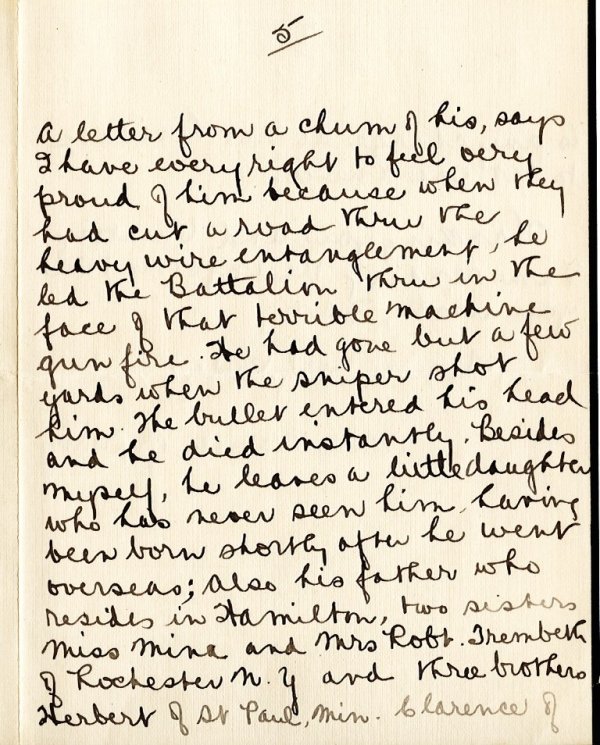 5
a letter from a chum of his, says
I have every right to feel very
proud of him because when they
had cut a road thru the
heavy wire entanglement, he
led the Battalion thru in the
face of that terrible machine
gun fire. He had gone but a few
yards when the sniper shot
him. The bullet entered his head
and he died instantly. Besides
myself, he leaves a little daughter
who has never seen him, having
been born shortly after he went
overseas; also his father who
resides in Hamilton, two sisters
Miss Mina and Mrs Robt. Trembeth
of Rochester N. Y and three brothers
Herbert of St Paul, Min. Clarence of